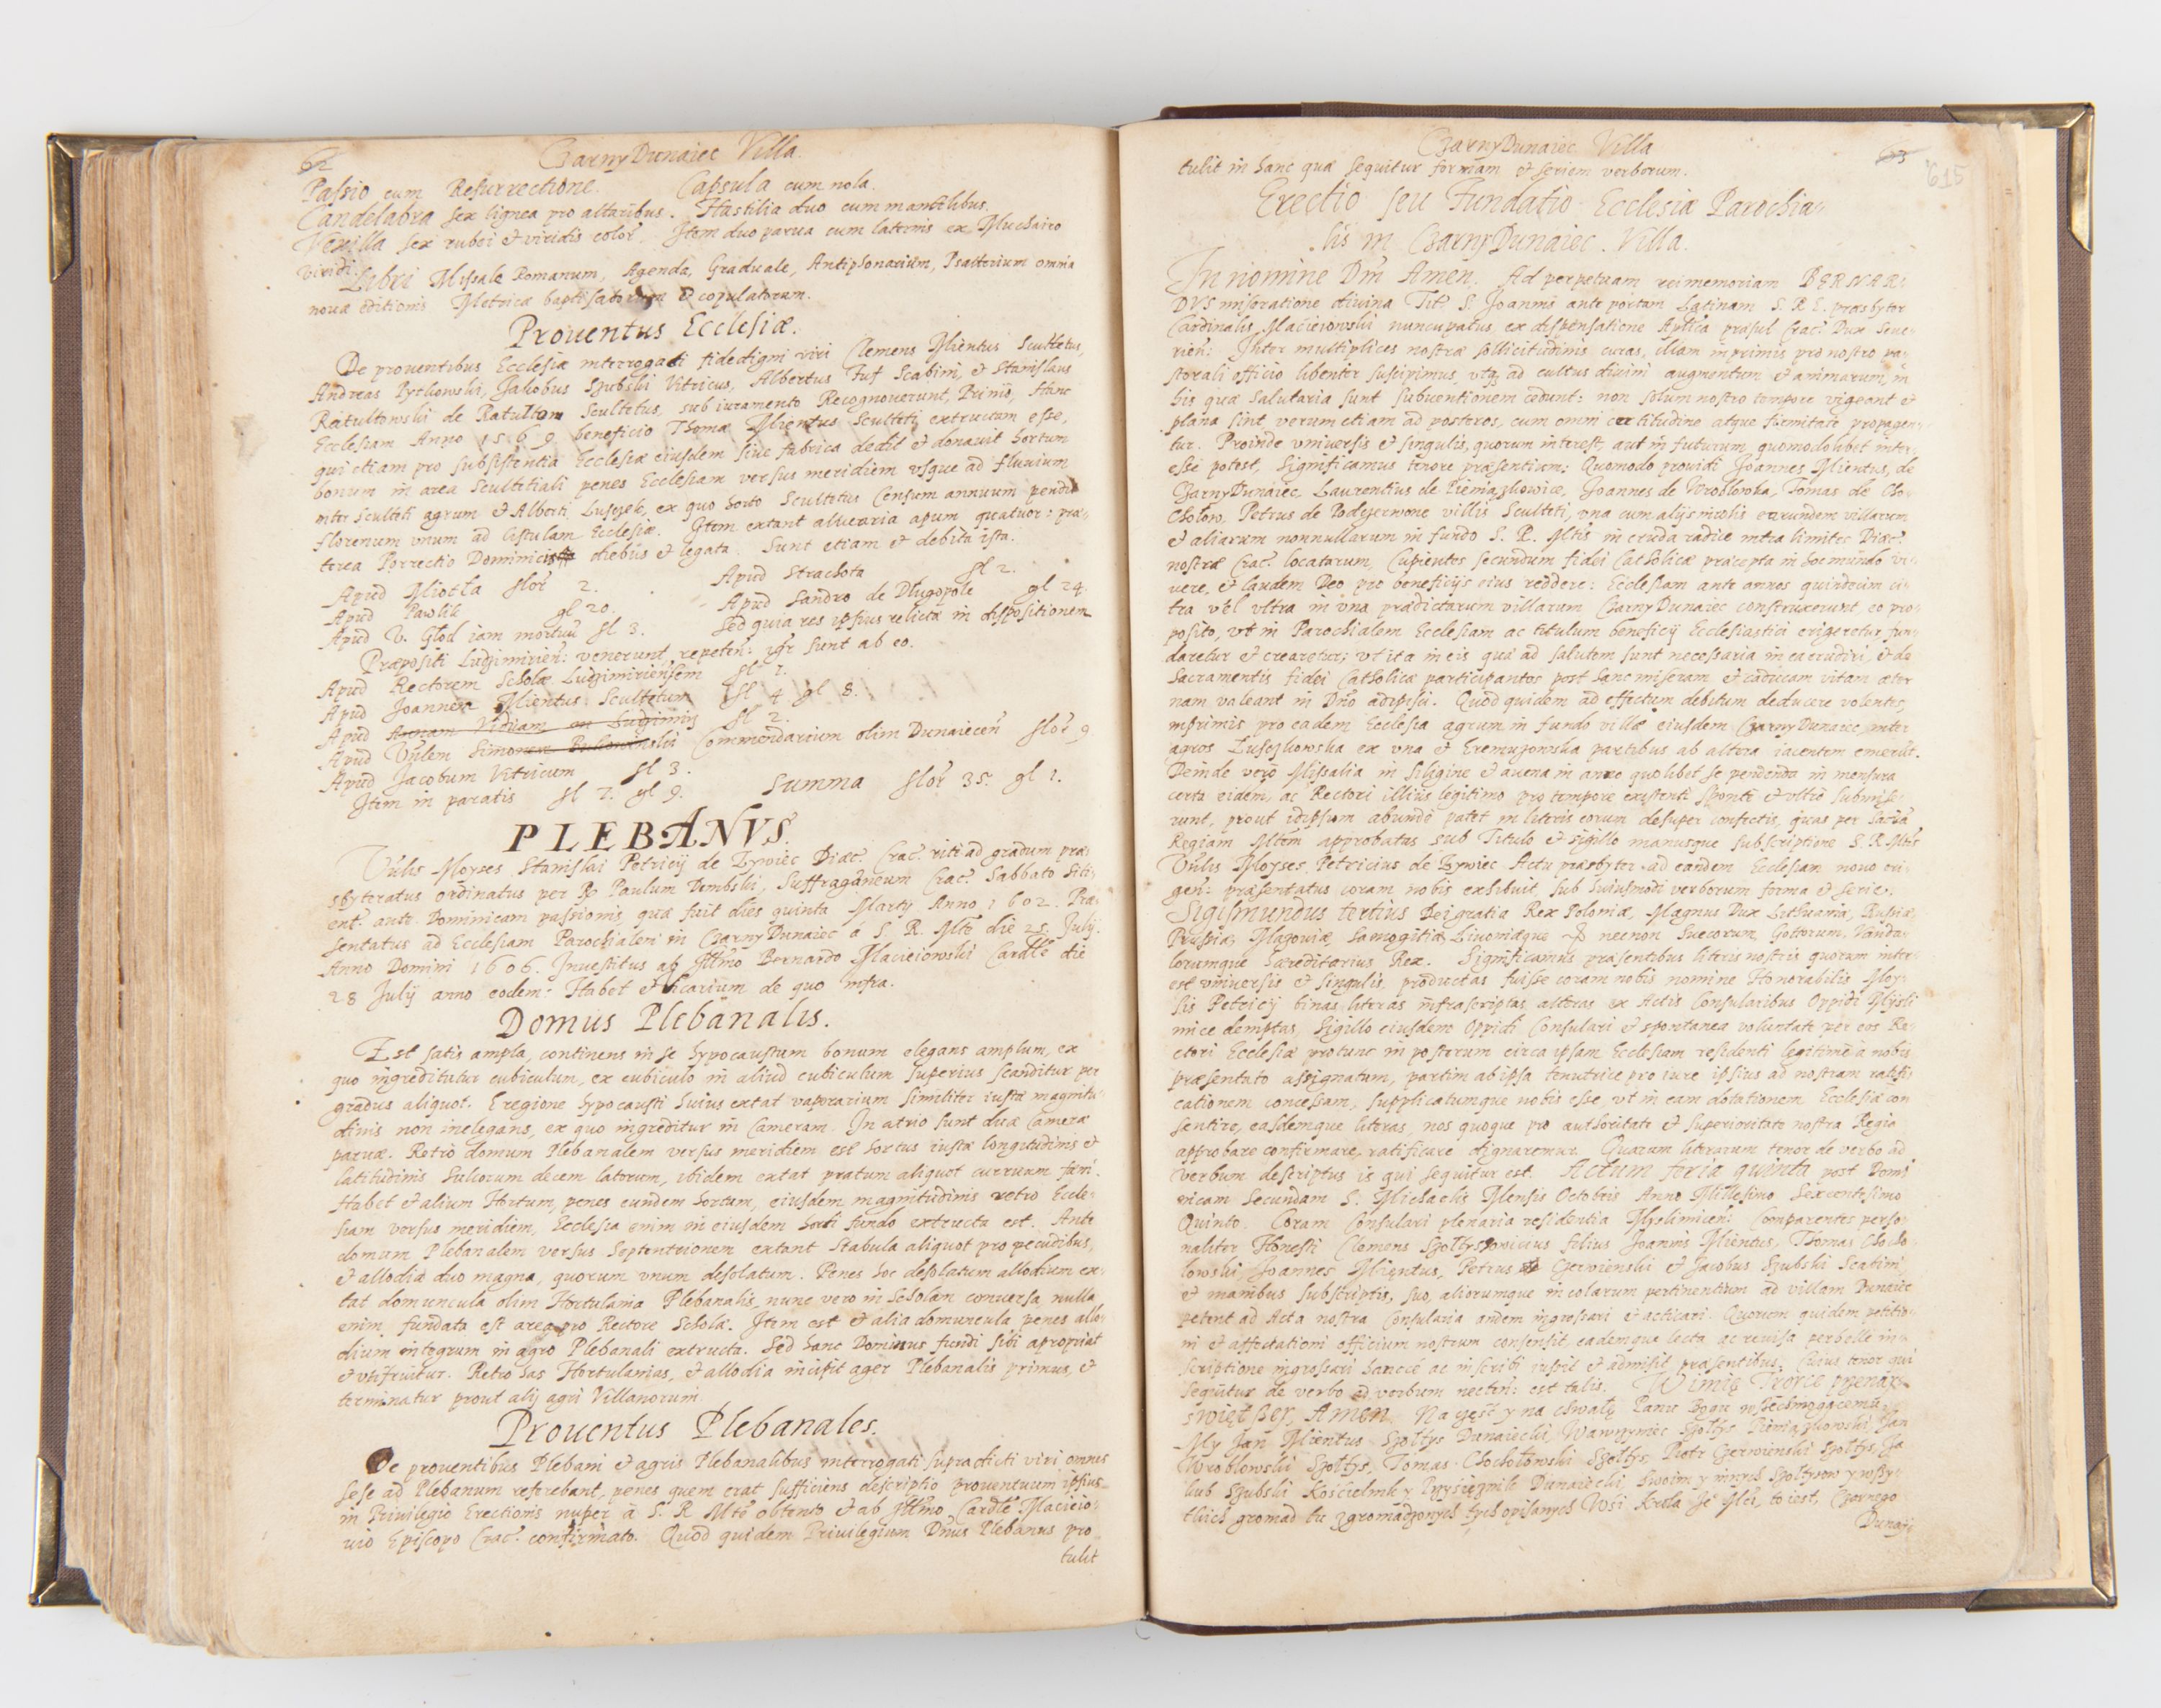 62
CzarnyDunaiec Villa.
Passio cum Resurrectione. Capsula cum nola.
Candelabra sex lignea pro altaribus. Hastilia duo cum mantilibus.
Vexilla sex rubei et viridis color. Item duo parua cum laternis ex Muchairo
viridi.
Libri Missale Romanum, Agenda, Graduale, Antiphonarium, Psalterium omnia
nouæ editionis Metrica baptisatorum et copulatorum.
Prouentus Ecclesiæ.
De prouentibus Ecclesiæ interrogati fidedigni viri Clemens Mientus Scultetus,
Andreas Pytlowski, Jakobus Szubski Vitricus, Albertus Fuf Scabini, et Stanislaus
Ratultowski de Ratultow Scultetus, sub iuramento Recognouerunt, Primo, Hanc
Ecclesiam Anno 1569 beneficio Thomæ Mientus Sculteti extructam esse,
qui etiam pro subsistentia Ecclesiæ eiusdem siue fabrica dedit et donauit hortum
bonum in area Scultetiali penes Ecclesiam versus meridiem vsque ad fluuium
inter Sculteti agrum et Alberti Luszczek, ex quo horto Scultetus Censum annuum pendit
florenum vnum ad Cistulam Ecclesiæ. Item extant aluearia apum quatuor: præ-
terea Porrectio Dominicis diebus et legata. Sunt etiam et debita ista.
Apud Miotla flor 2. Apud Strachota fl 2.
Apud Pawlik gl 20. Apud Sandro de Dlugopole gl 24.
Apud V. Glod iam mortuu fl 3. Sed quia res ipsius relictæ in dispositionem
Præpositi Ludzimirien: venerunt, repeten: sunt ab eo.
Apud Rectorem Scholæ Ludzimiriensem fl 7.
Apud Joannem Mientus Scultetum fl 4 gl 8.
Apud Annam Viduam fl 2.
Apud Vnlem Simonem Commendarium olim Dunaiecen flor 9
Apud Jacobum Vitricum fl 3.
Item in paratis fl 7. gl 9. Summa flor 35. gl 1.
PLEBANVS.
Vnlis Moyses Stanislai Petricij de Zywiec Diæc. Crac. rite ad gradum præs-
byteratus ordinatus per R Paulum Dembski, Suffraganeum Crac. Sabbato Siti-
ent. ante Dominicam passionis, quæ fuit dies quinta Martij Anno 1602. Præ-
sentatus ad Ecclesiam Parochialem in CzarnyDunaiec a S. R. Mte die 25 July.
Anno Domini 1606. Inuestitus ab Illmo Bernardo Macieiowski Cardle die
28 July anno eodem: Habet et vicarium de quo infra.
Domus Plebanalis.
Est satis ampla, continens in se hypocaustum bonum elegans amplum, ex
quo ingreditutur cubiculum, ex cubiculo in aliud cubiculum superius scanditur per
gradus aliquot. E regione hypocausti huius extat vaporarium similiter iustæ magnitu-
dinis non inelegans, ex quo ingreditur in Cameram. In atrio sunt duæ Cameræ
paruæ. Retro domum Plebanalem versus meridiem est hortus iustæ longitudinis et
latitudinis Sulcorum decem latorum, ibidem extat pratum aliquot curruum fæni.
Habet et alium Hortum, penes eundem hortum, eiusdem magnitudinis retro Eccle-
siam versus meridiem, Ecclesia enim in eiusdem horti fundo extructa est. Ante
domum Plebanalem versus Septentrionem extant Stabula aliquot pro pecudibus,
et allodia duo magna, quorum vnum desolatum. Penes hoc desolatum allodium ex-
tat domuncula olim Hortulania Plebanalis, nunc vero in Scholam conuersa, nulla
enim fundata est area pro Rectore Scholæ. Item est et alia domuncula penes allo-
dium integrum in agro Plebanali extructa. Sed hanc Dominus fundi sibi apropriat
et vtifruitur. Retro has Hortulanias, et allodia incipit ager Plebanalis primus, et
terminatur prout alij agri Villanorum.
Prouentus Plebanales.
De prouentibus Plebani et agris Plebanalibus interrogati supradicti viri omnes
sese ad Plebanum referebant, penes quem erat sufficiens descriptio prouentuum ipsius
in Priuilegio Erectionis nuper a S. R Mte obtento et ab Illmo Cardle Macieio-
uio Episcopo Crac. confirmato. Quod quidem Priuilegium Dnus Plebanus pro
tulit
CzarnyDunaiec Villa
63
615
tulit in hanc quæ sequitur formam et seriem verborum.
Erectio seu Fundatio Ecclesiæ Parochia-
lis in CzarnyDunaiec Villa.
In nomine Dni Amen. Ad perpetuam rei memoriam BERNAR-
DVS miseratione diuina Tit. S. Joannis ante portam Latinam S. R. E. præsbyter
Cardinalis Macieiowski nuncupatus ex dispensatione Aplica præsul Crac. Dux Seue-
rien: Inter multiplices nostræ sollicitudinis curas, illam inprimis pro nostro pa-
storali officio libenter suscipimus, vtq; ad cultus diuini augmentum et animarum, in
his quæ salutaria sunt subuentionem cedunt: non solum nostro tempore vigeant et
plana sint, verum etiam ad posteros, cum omni certitudine atque firmitate propagen-
tur. Proinde vniuersis et singulis, quorum interest, aut in futurum quomodolibet inter-
esse potest, Significamus tenore præsentium: Quomodo prouidi Joannes Mientus, de
CzarnyDunaiec, Laurentius de Pieniązkowice, Joannes de Wroblowka, Tomas de Cho-
cholow, Petrus de Podczerwone villis Sculteti, vna cum alijs incolis earundem villarum
et aliarum nonnullarum in fundo S. R. Mtis in cruda radice intra limites Diæc.
nostræ Crac. locatarum, Cupientes secundum fidei Catholicæ præcepta in hoc mundo vi-
uere, et laudem Deo pro beneficijs eius reddere: Ecclesiam ante annos quindecim ci-
tra vel vltra in vna prædictarum villarum CzarnyDunaiec construxerunt, eo pro-
posito, vt in Parochialem Ecclesiam ac titulum beneficij Ecclesiastici erigeretur, fun-
daretur et crearetur; vt ita in eis quæ ad salutem sunt necessaria in ea erudiri, et de
Sacramentis fidei Catholicæ participantes post hanc miseram et caducam vitam æter
nam valeant in Dno adipisci. Quod quidem ad effectum debitum deducere volentes,
inprimis pro eadem Ecclesia agrum in fundo villæ eiusdem CzarnyDunaiec, inter
agros Luszczkowska ex vna et Eremuzowska partibus ab altera iacentem emerunt.
Deinde vero Missalia in siligine et auena in anno quolibet se pendenda in mensura
certa eidem, ac Rectori illius legitimo pro tempore existenti sponte et vltro submise-
runt, prout idipsum abunde patet in literis eorum desuper confectis, quas per Sacra
Regiam Mtem approbatas sub Titulo et sigillo manusque subscriptione S. R Mtis
Vnlis Moyses Petricius de Zywiec Actu præsbyter ad eandem Ecclesiam nouo eri-
gen: præsentatus coram nobis exhibuit, sub huiusmodi verborum forma et serie.
Sigismundus tertius Dei gratia Rex Poloniæ, Magnus Dux Lithuaniæ, Russiæ,
Prussiæ, Mazouiæ, Samogitiæ Liuoniæque nec non Suecorum, Gottorum, Vanda-
lorumque hæreditarius Rex. Significamus præsentibus literis nostris quorum inter-
est vniuersis et singulis, productas fuisse coram nobis nomine Honorabilis Moy-
sis Petricij binas literas infrascriptas alteras ex Actis Consularibus Oppidi Misli-
mice demptas, Sigillo eiusdem Oppidi Consulari et spontanea voluntate per eos Re-
ctori Ecclesiæ pro tunc in posterum circa ipsam Ecclesiam residenti legitime a nobis
præsentato assignatam, partim ab ipsa tenutrice pro iure ipsius ad nostram ratifi-
cationem concessam, supplicatumque nobis esse, vt in eam dotationem Ecclesiæ con
sentire, easdemque literas, nos quoque pro authoritate et superioritate nostra Regia
approbare confirmare, ratificare dignaremur. Quarum literarum tenor de verbo ad
verbum descriptus is qui sequitur est. Actum feria quinta post Domi
nicam secundam S. Michaelis Mensis Octobris Anno Millesimo Sexcentesimo
Quinto. Coram Consulari plenaria residentia Myslimicen: Comparentes perso-
naliter Honesti Clemens Szoltysowicius filius Joannis Mientus, Thomas Chocho
lowski, Joannes Mientus, Petrus Czerwienski et Jacobus Szubski Scabini,
et manibus subscriptis, suo, aliorumque incolarum pertinentium ad villam Dunaiec
petent ad Acta nostra Consularia eandem ingrossari et acticari. Quorum quidem petitio-
ni et affectationi officium nostrum consensit, eademque lecta ac reuisa perbelle in-
scriptione ingrossari sanccit ac inscribi iussit et admisit præsentibus: Cuius tenor qui
sequitur de verbo ad verbum necten: est talis. W imię Troyce przenay-
swiętszey, Amen. Na czesć y na chwałę Panu Bogu wszechmogącemu,
My Jan Mientus Szoltys Dunaiecki, Wawrzyniec Szoltys Pieniązkowski, Jan
Wroblowski Szoltys, Tomas Chocholowski Szoltys, Piotr Czerwienski Szoltys, Ja-
kub Szubski Koscielnik y Przysiężnik Dunaiecki, swoim y innych Szoltysow y wszy-
tkich gromad tu zgromadzonych tych opisanych Wsi Krola Je Mci, to iest, Czarnego
Dunay